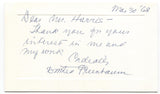 Mar 30 '68
Dear Mr. Harris —
Thank you for your
interest in me and
my work.
Cordially,